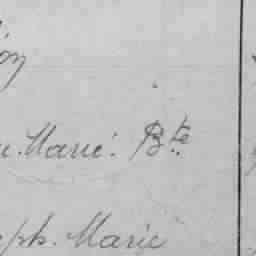 u. Marie. Bte
eph. Marie